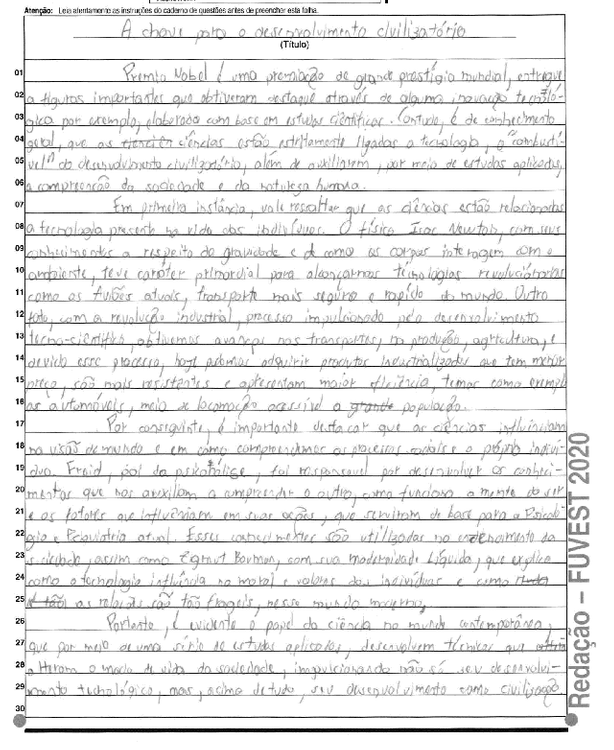 Atenção: Leia atentamente as instruções do caderno de questões antes de preencher esta folha.
A chave para o desenvolvimento civilizatório
(Título)
01 Premio Nobel é uma premiação de grande prestígio mundial, entregue
02 a figuras importantes que obtiveram destaque através de alguma inovação tecnoló-
03 gica por exemplo, elaborada com base em estudos científicos. Contudo, é de conhecimento
04 geral, que as ciências estão estritamente ligadas a tecnologia, o "combustí-
05 vel" do desenvolvimento civilizatório, além de auxiliarem, por meio de estudos aplicados,
06 a compreenção da sociedade e da natureza humana.
07 Em primeira instância, vale ressaltar que as ciências estão relacionadas
08 a tecnologia presente na vida dos indivíduos. O físico Isac Newton, com seus
09 conhecimentos a respeito da gravidade e de como os corpos interagem com o
10 ambiente, teve caráter primordial para alcançarmos tecnologias revolucionárias
11 como os aviões atuais, transporte mais seguro e rapido do mundo. Outro
12 fato, com a revolução industrial, processo impulsionado pelo desenvolvimento
13 tecno-científico, obtivemos avanços nos transportes, na produção, agricultura, e
14 devido esse processo, hoje podemos adquirir produtos industrializados que tem menor
15 preço, são mais resistentes e apresentam maior eficiência, temos como exemplo
16 os automóveis, meio de locomoção acessível a população.
17 Por conseguinte, é importante destacar que as ciências influenciam
18 na visão de mundo e em como compreendemos os processos sociais e o próprio indiví-
19 duo. Froid, pai da psicanálise, foi responsavel por desenvolver os conheci-
20 mentos que nos auxiliam a compreender o outro, como funciona a mente do ser
21 e os fatores que influenciam em suas ações, que serviram de base para a Psicolo-
22 gia e Psiquiatria atual. Esses conhecimentos são utilizados no entendimento da
23 sociedade, assim como Zigmut Bauman, com sua modernidade Líquida, que explica
24 como a tecnologia influência na moral e valores dos indivíduos e como
25 as relações são tão frageis, nesse mundo moderno.
26 Portanto, é evidente o papel da ciência no mundo contemporâneo,
27 que por meio de uma série de estudos aplicados, desenvolvem técnicas que
28 alteram o modo de vida da sociedade, impulsionando não só seu desenvolvi-
29 mento tecnológico, mas, acima de tudo, seu desenvolvimento como civilização
30
Redação – FUVEST 2020